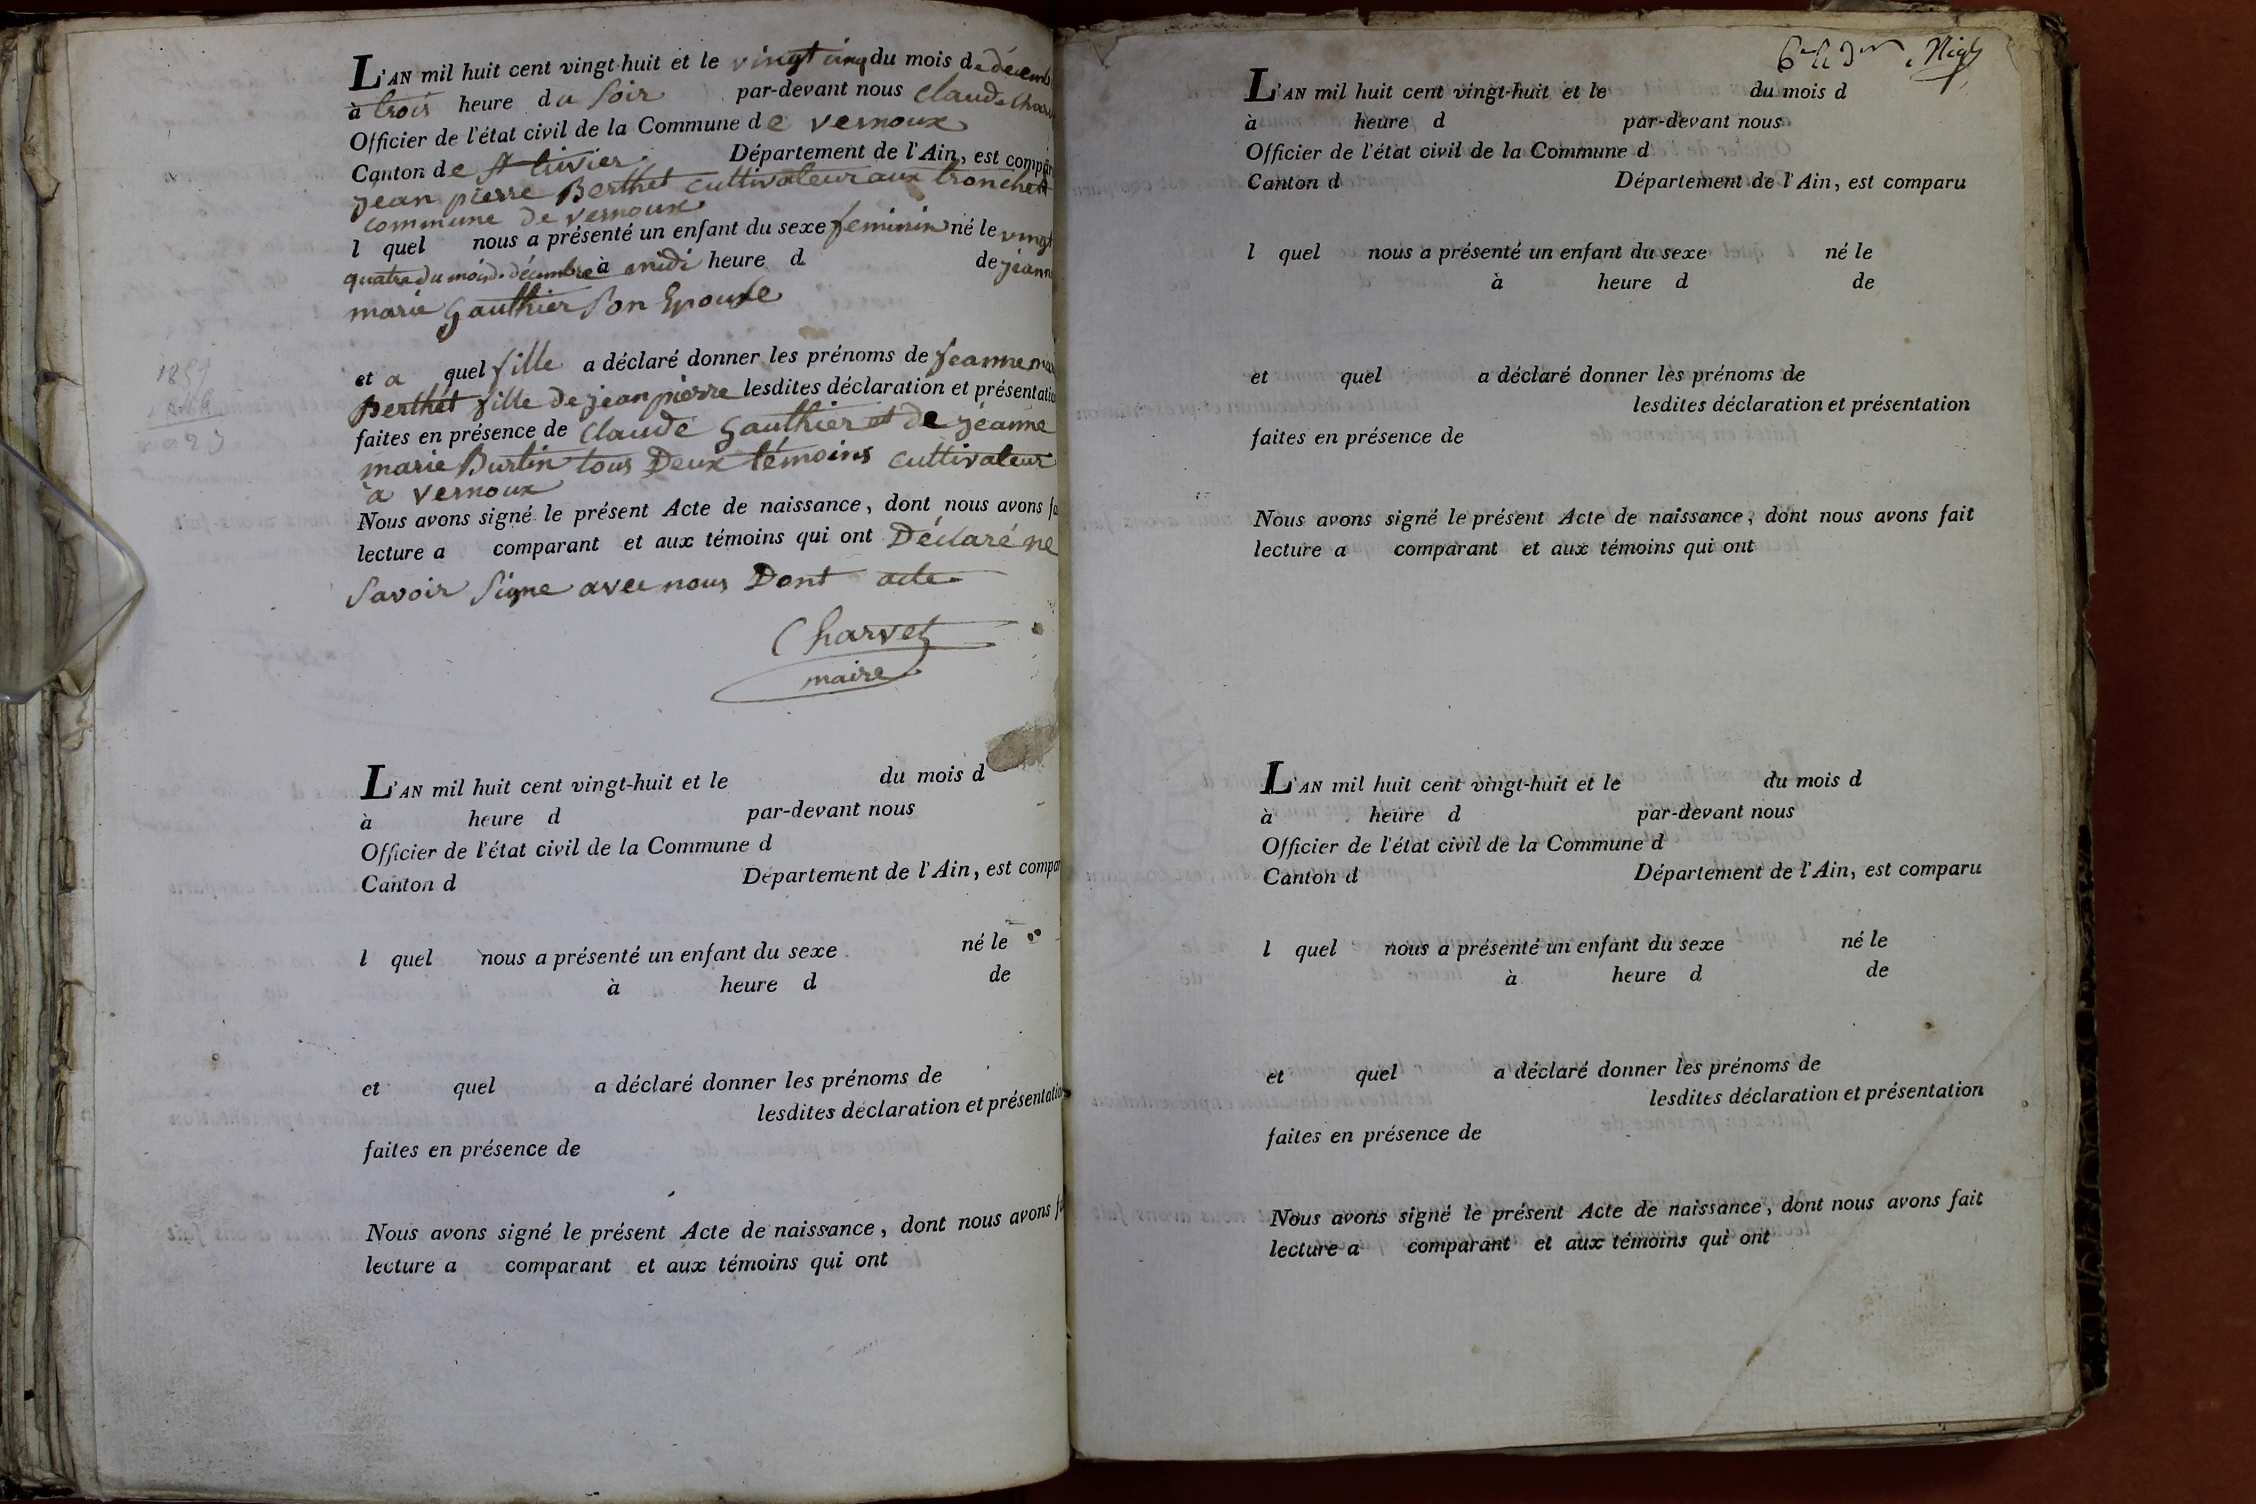 L'AN mil huit cent vingt-huit et le vingt cinq du mois de décemb
à trois heure du soir par-devant nous Claude Char
Officier de l'état civil de la Commune de vernoux
Canton de st trivier Département de l'Ain, est compar
jean pierre Berthet cultivateur aux tronchet
commune de vernoux
l quel nous a présenté un enfant du sexe feminin né le vingt
quatre du mois de décembre à midi heure d de jeann
marie gauthier son Epouse
et a quel fille a déclaré donner les prénoms de jeanne mari
Berthet fille de jean pierre lesdites déclaration et présentatio
faites en présence de Claude gauthier et de jeanne
marie Burtin tous Deux témoins cultivateur
a vernoux
Nous avons signé le présent Acte de naissance, dont nous avons fa
lecture a comparant et aux témoins qui ont Déclaré ne
savoir signe avec nous Dont acte
Charvet
maire
L'AN mil huit cent vingt-huit et le du mois d
à heure d par-devant nous
Officier de l'état civil de la Commune d
Canton d Département de l'Ain, est compar
l quel nous a présenté un enfant du sexe né le
à heure d de
et quel a déclaré donner les prénoms de
lesdites déclaration et présentatio
faites en présence de
Nous avons signé le présent Acte de naissance, dont nous avons fa
lecture a comparant et aux témoins qui ont
L'AN mil huit cent vingt-huit et le du mois d
à heure d par-devant nous
Officier de l'état civil de la Commune d
Canton d Département de l'Ain, est comparu
l quel nous a présenté un enfant du sexe né le
à heure d de
et quel a déclaré donner les prénoms de
lesdites déclaration et présentation
faites en présence de
Nous avons signé le présent Acte de naissance, dont nous avons fait
lecture a comparant et aux témoins qui ont
L'AN mil huit cent vingt-huit et le du mois d
à heure d par-devant nous
Officier de l'état civil de la Commune d
Canton d Département de l'Ain, est comparu
l quel nous a présenté un enfant du sexe né le
à heure d de
et quel a déclaré donner les prénoms de
lesdites déclaration et présentation
faites en présence de
Nous avons signé le présent Acte de naissance, dont nous avons fait
lecture a comparant et aux témoins qui ont